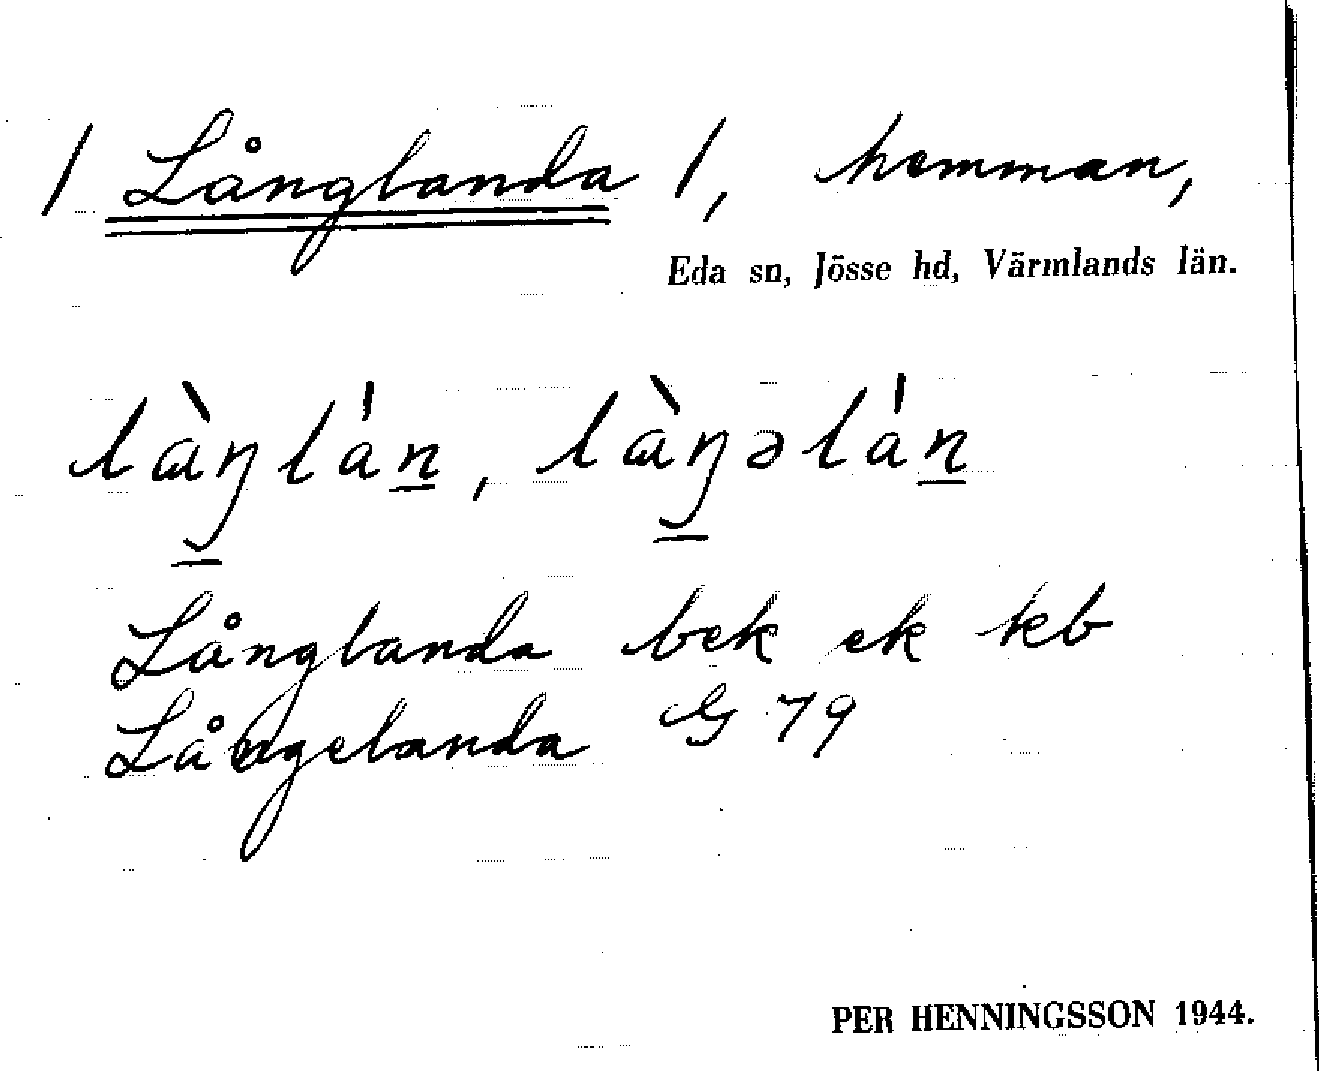 / Långlanda /, hemman,
Eda sn, Jösse hd, Värmlands län.
lɷ̀ŋlán̲, lɷ̀ŋəlán̲
Långlanda bek ek kb
Långelanda G 79
PER HENNINGSSON 1944.